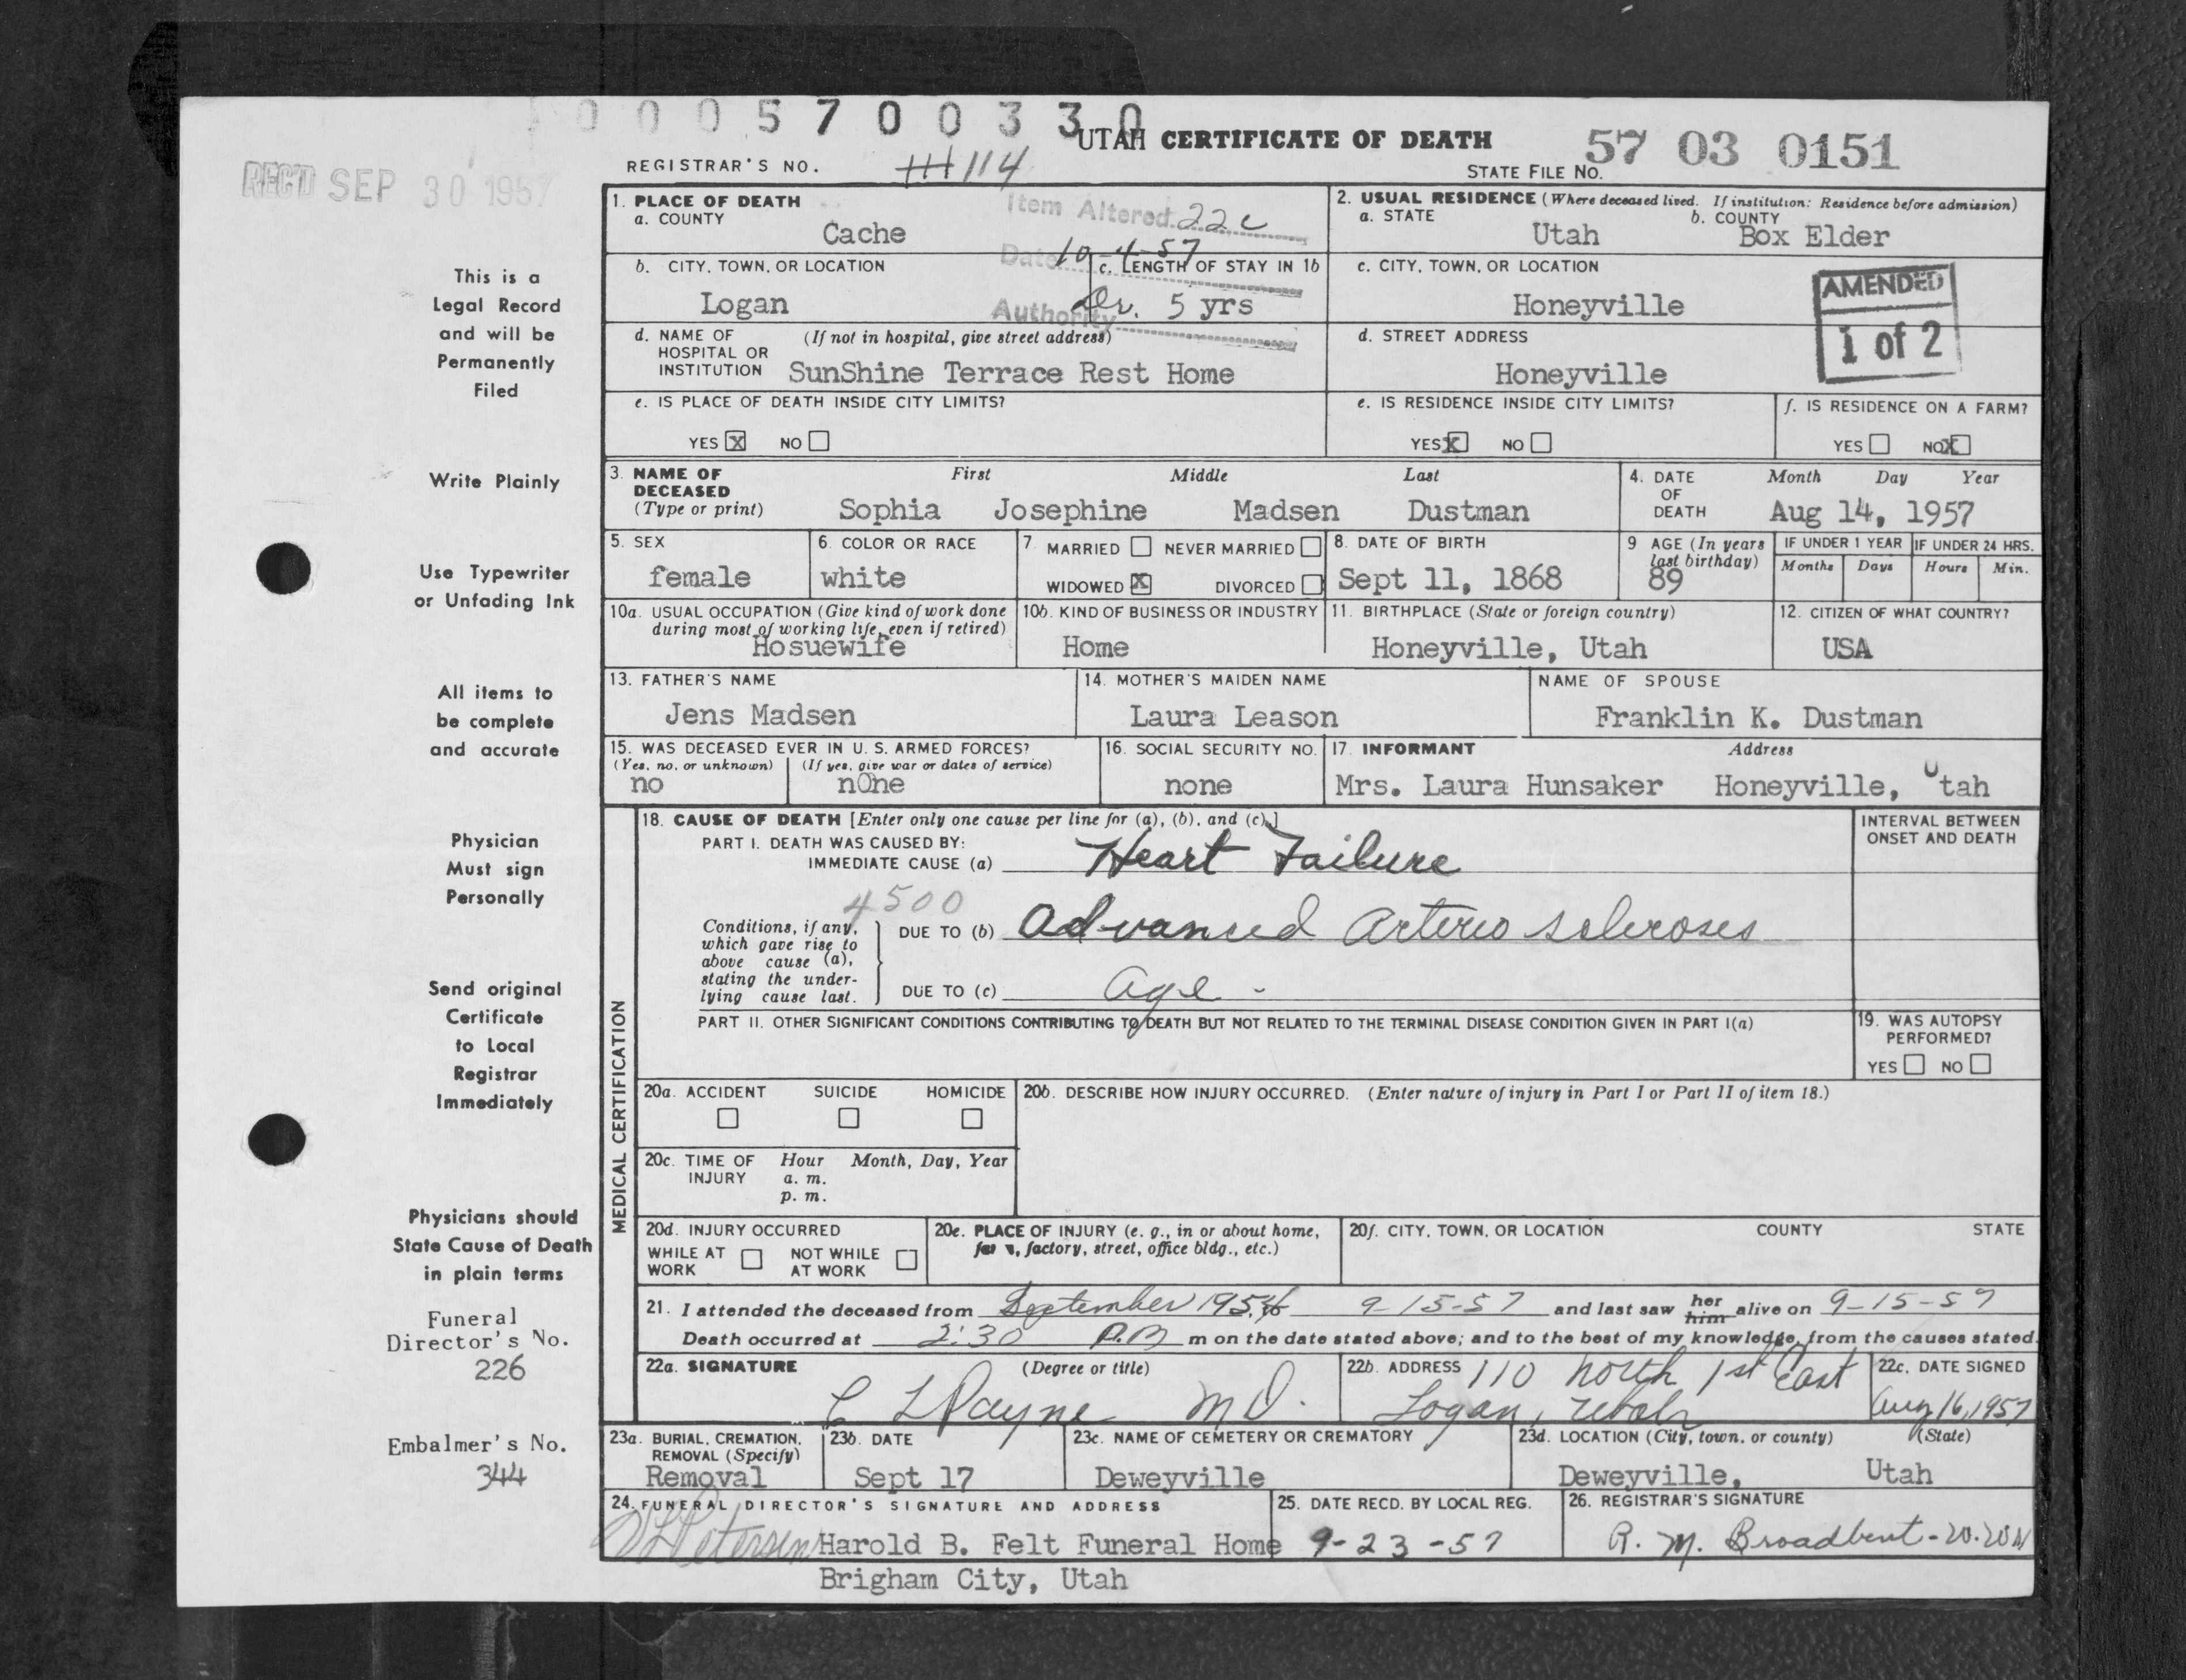 0005700330
UTAH CERTIFICATE OF DEATH
57 03 0151
REC'D SEP 30 1957
REGISTRAR'S NO. 114
STATE FILE NO.
1. PLACE OF DEATH
a. COUNTY
Cache
Item Altered 22c
Date 10-4-57
Authority Dr.
2. USUAL RESIDENCE (Where deceased lived. If institution: Residence before admission)
a. STATE
Utah
b. COUNTY
Box Elder
b. CITY, TOWN, OR LOCATION
Logan
c. LENGTH OF STAY IN 1b
5 yrs
c. CITY, TOWN, OR LOCATION
Honeyville
AMENDED
1 of 2
d. NAME OF HOSPITAL OR INSTITUTION
(If not in hospital, give street address)
SunShine Terrace Rest Home
d. STREET ADDRESS
Honeyville
e. IS PLACE OF DEATH INSIDE CITY LIMITS?
YES X NO
e. IS RESIDENCE INSIDE CITY LIMITS?
YES X NO
f. IS RESIDENCE ON A FARM?
YES NO X
3. NAME OF DECEASED (Type or print)
First Middle Last
Sophia Josephine Madsen Dustman
4. DATE OF DEATH
Month Day Year
Aug 14, 1957
5. SEX
female
6. COLOR OR RACE
white
7. MARRIED NEVER MARRIED
WIDOWED X DIVORCED
8. DATE OF BIRTH
Sept 11, 1868
9 AGE (In years last birthday)
89
IF UNDER 1 YEAR
Months Days
IF UNDER 24 HRS.
Hours Min.
10a. USUAL OCCUPATION (Give kind of work done during most of working life, even if retired)
Hosuewife
10b. KIND OF BUSINESS OR INDUSTRY
Home
11. BIRTHPLACE (State or foreign country)
Honeyville, Utah
12. CITIZEN OF WHAT COUNTRY?
USA
13. FATHER'S NAME
Jens Madsen
14. MOTHER'S MAIDEN NAME
Laura Leason
NAME OF SPOUSE
Franklin K. Dustman
15. WAS DECEASED EVER IN U. S. ARMED FORCES?
(Yes, no, or unknown) (If yes, give war or dates of service)
no n0ne
16. SOCIAL SECURITY NO.
none
17. INFORMANT Address
Mrs. Laura Hunsaker Honeyville, Utah
MEDICAL CERTIFICATION
18. CAUSE OF DEATH [Enter only one cause per line for (a), (b), and (c).]
PART I. DEATH WAS CAUSED BY:
IMMEDIATE CAUSE (a) Heart Failure
4500
Conditions, if any, which gave rise to above cause (a), stating the underlying cause last.
DUE TO (b) Advanced Arterio scleroses
DUE TO (c) age -
INTERVAL BETWEEN ONSET AND DEATH
PART II. OTHER SIGNIFICANT CONDITIONS CONTRIBUTING TO DEATH BUT NOT RELATED TO THE TERMINAL DISEASE CONDITION GIVEN IN PART I(a)
19. WAS AUTOPSY PERFORMED?
YES NO
20a. ACCIDENT SUICIDE HOMICIDE
20b. DESCRIBE HOW INJURY OCCURRED. (Enter nature of injury in Part I or Part II of item 18.)
20c. TIME OF INJURY Hour Month, Day, Year
a. m.
p. m.
20d. INJURY OCCURRED
WHILE AT WORK NOT WHILE AT WORK
20e. PLACE OF INJURY (e. g., in or about home, farm, factory, street, office bldg., etc.)
20f. CITY, TOWN, OR LOCATION COUNTY STATE
21. I attended the deceased from September 1956 9-15-57 and last saw her him alive on 9-15-57
Death occurred at 2:30 P.M m on the date stated above; and to the best of my knowledge, from the causes stated.
22a. SIGNATURE (Degree or title)
C L Payne M D.
22b. ADDRESS 110 North 1st East
Logan, Utah
22c. DATE SIGNED
Aug 16, 1957
23a. BURIAL, CREMATION, REMOVAL (Specify)
Removal
23b. DATE
Sept 17
23c. NAME OF CEMETERY OR CREMATORY
Deweyville
23d. LOCATION (City, town, or county) (State)
Deweyville, Utah
24. FUNERAL DIRECTOR'S SIGNATURE AND ADDRESS
Petersen Harold B. Felt Funeral Home
Brigham City, Utah
25. DATE RECD. BY LOCAL REG.
9-23-57
26. REGISTRAR'S SIGNATURE
R. M. Broadbent
This is a
Legal Record
and will be
Permanently
Filed
Write Plainly
Use Typewriter
or Unfading Ink
All items to
be complete
and accurate
Physician
Must sign
Personally
Send original
Certificate
to Local
Registrar
Immediately
Physicians should
State Cause of Death
in plain terms
Funeral
Director's No.
226
Embalmer's No.
344